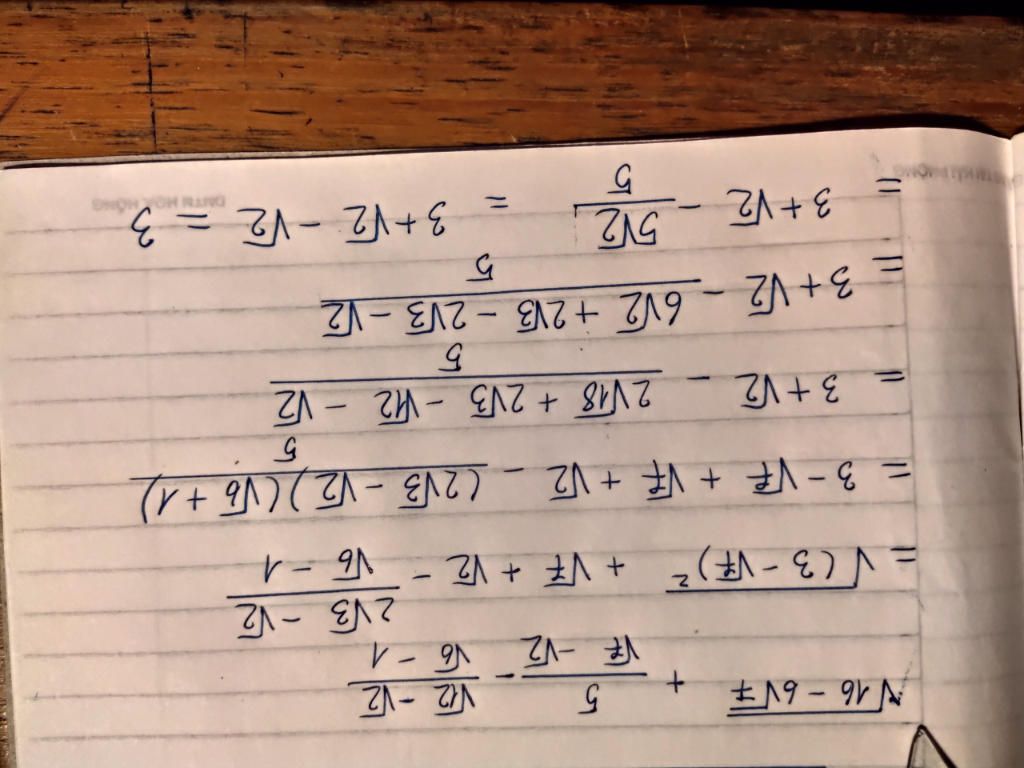 √16 - 6√7 + 5/(√7 - √2) - (√12 - √2)/(√6 - 1)
= √(3 - √7)² + √7 + √2 - (2√3 - √2)/(√6 - 1)
= 3 - √7 + √7 + √2 - (2√3 - √2)(√6 + 1)/5
= 3 + √2 - (2√18 + 2√3 - √12 - √2)/5
= 3 + √2 - (6√2 + 2√3 - 2√3 - √2)/5
= 3 + √2 - 5√2/5 = 3 + √2 - √2 = 3